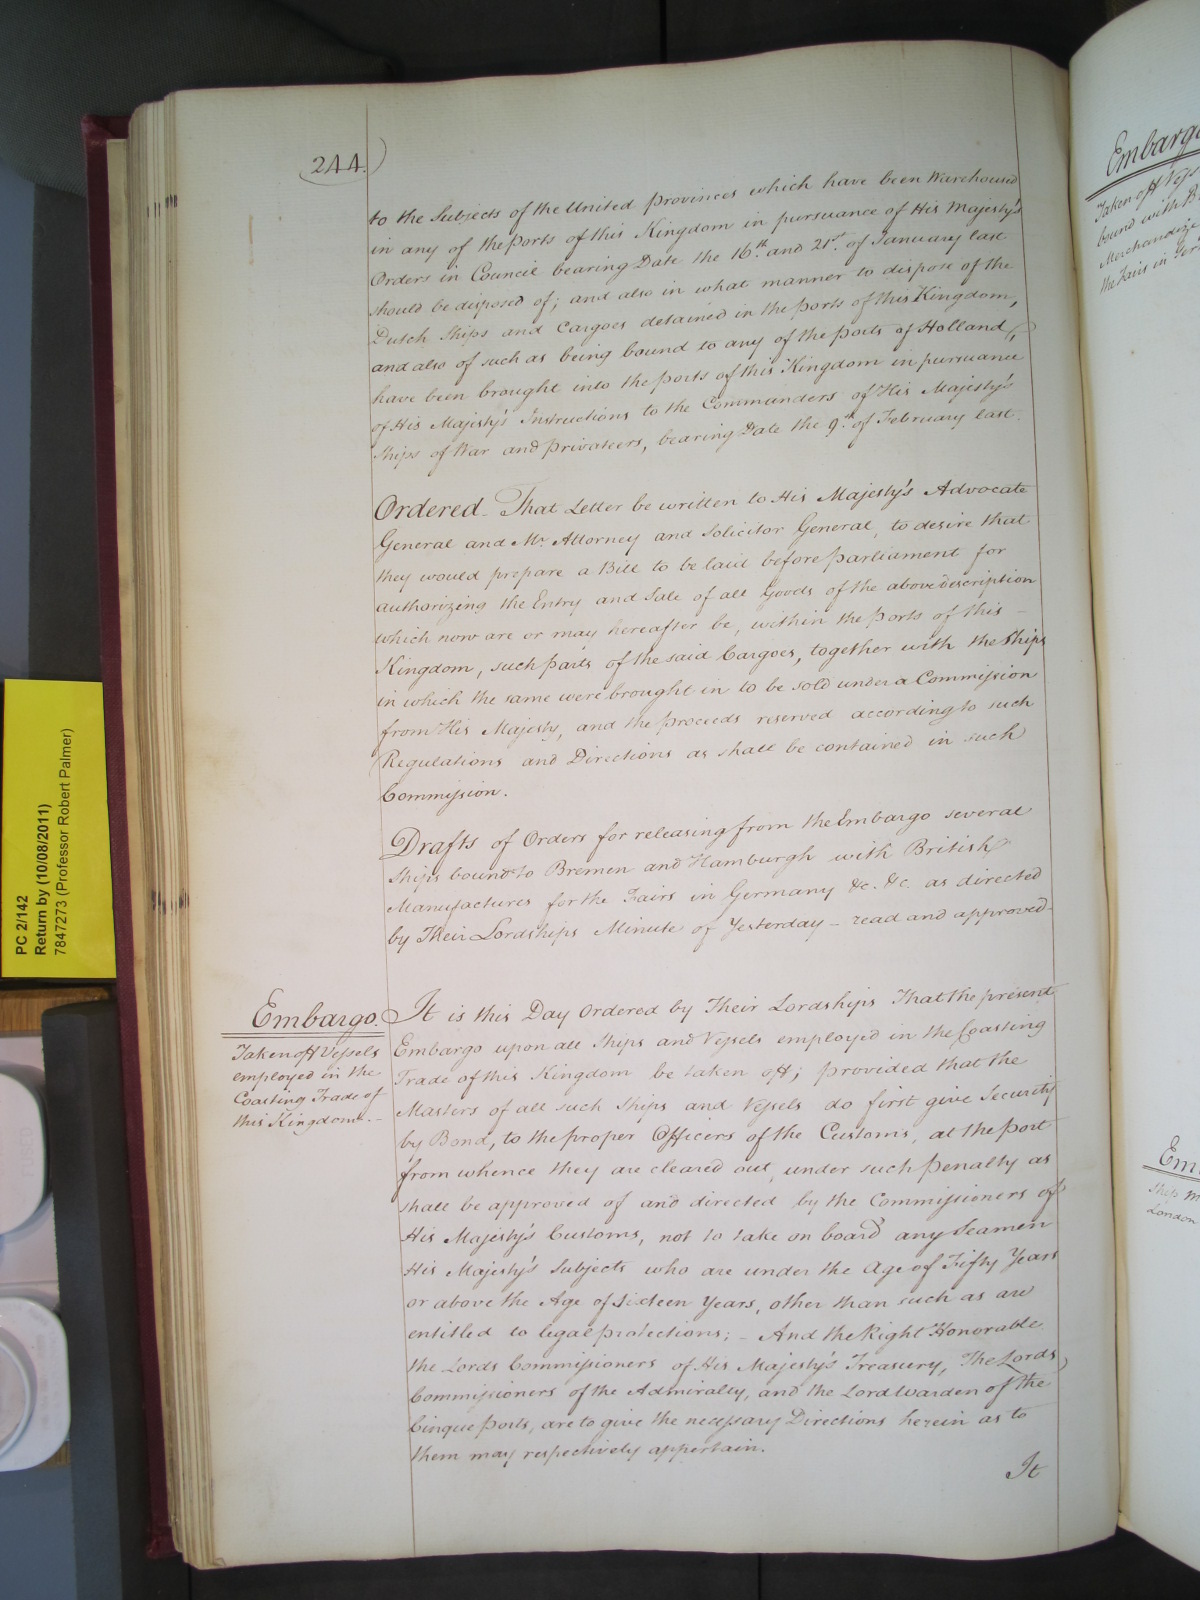 244.
to the Subjects of the United Provinces which have been Warehoused
in any of the Ports of this Kingdom in pursuance of His Majesty's
Orders in Council bearing Date the 16th and 21st of January last
should be disposed of; and also in what manner to dispose of the
Dutch Ships and Cargoes detained in the Ports of this Kingdom,
and also of such as being bound to any of the Ports of Holland,
have been brought into the Ports of this Kingdom in pursuance
of His Majesty's Instructions to the Commanders of His Majesty's
Ships of War and Privateers, bearing Date the 9th of February last.
Ordered. That Letter be written to His Majesty's Advocate
General and Mr. Attorney and Solicitor General, to desire that
they would prepare a Bill to be laid before Parliament for
authorizing the Entry and Sale of all Goods of the above description
which now are or may hereafter be, within the Ports of this –
Kingdom, such parts of the said Cargoes, together with the Ships
in which the same were brought in to be sold under a Commission
from His Majesty, and the proceeds reserved according to such
Regulations and Directions as shall be contained in such
Commission.
Drafts of Orders for releasing from the Embargo several
Ships bound to Bremen and Hamburgh with British
Manufactures for the Fairs in Germany &c. &c. as directed
by Their Lordships Minute of Yesterday – read and approved.
Embargo.
Taken off Vessels
employed in the
Coasting Trade of
this Kingdom. –
It is this Day Ordered by Their Lordships That the present
Embargo upon all Ships and Vessels employed in the Coasting
Trade of this Kingdom be taken off; provided that the
Masters of all such Ships and Vessels do first give Security
by Bond, to the proper Officers of the Customs, at the Port
from whence they are cleared out, under such Penalty as
shall be approved of and directed by the Commissioners of
His Majesty's Customs, not to take on board any Seamen
His Majesty's Subjects who are under the Age of Fifty Years
or above the Age of Sixteen Years, other than such as are
entitled to legal protections; – And the Right Honorable
the Lords Commissioners of His Majesty's Treasury, The Lords
Commissioners of the Admiralty, and the Lord Warden of the
Cinque Ports, are to give the necessary Directions herein as to
them may respectively appertain.
It
PC 2/142
Return by (10/08/2011)
7847273 (Professor Robert Palmer)
Embargo
Taken off Vess
bound with B
Merchandize
the Fairs in Ger
Em
Ships
London